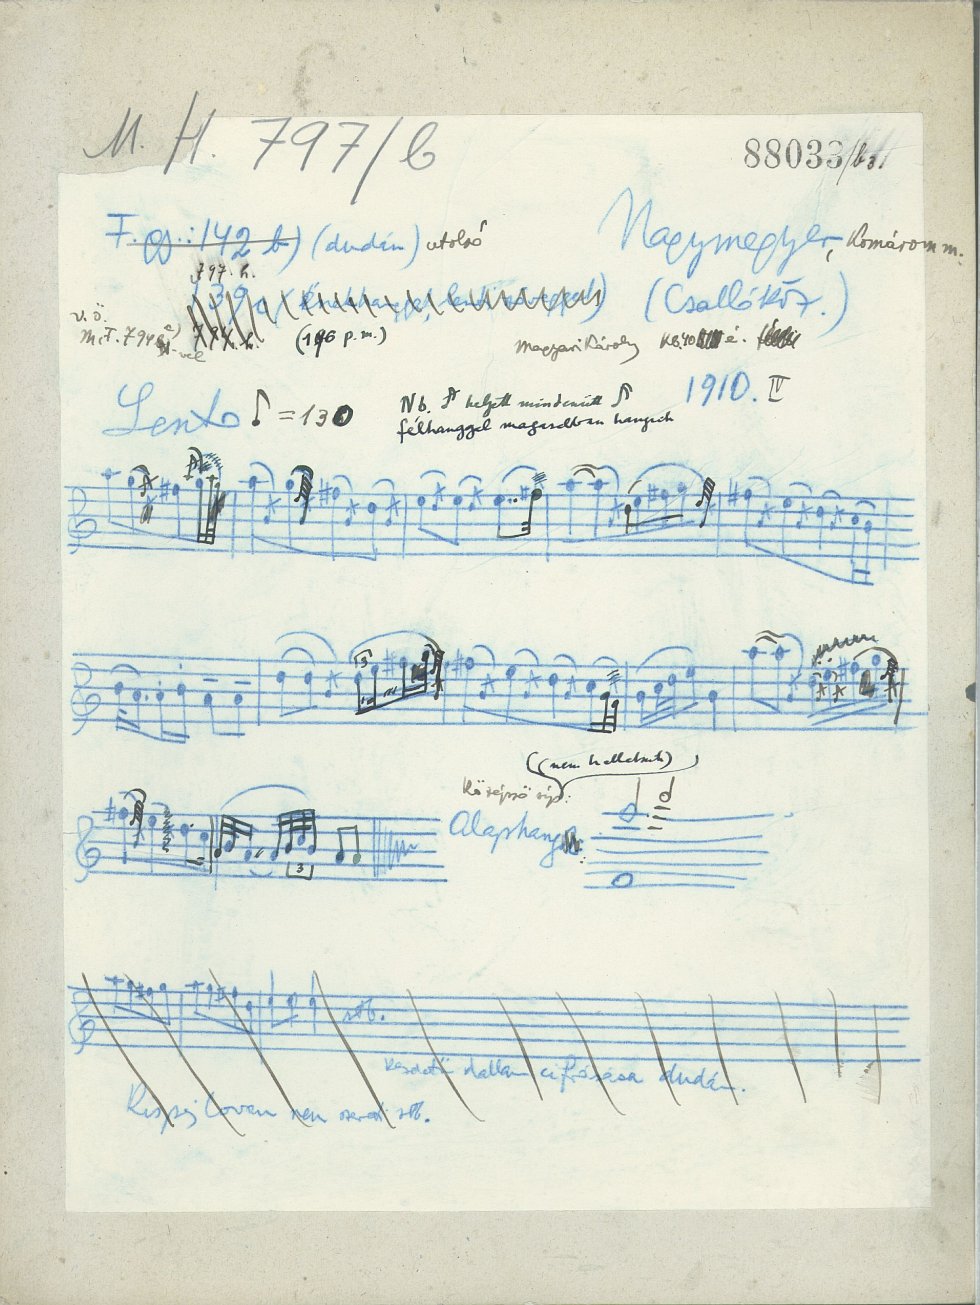 M. H. 797/b
88033/b3.
F. gy.: 142 b) (dudán) utolsó
Nagymegyer, Komárom m.
797. h.
139
(Csallóköz.)
v. ö.
M.F. 794 a)-vel
794. h.
(196 p. m.)
Magyari Károly kb. 40 é.
Lento ♪ = 130
Nb. helyett mindenütt
félhanggal magasabban hangzik
1910. IV
3
(nem hallatszik)
Középső síp:
Alaphang
3
stb.
Kezdeti dallam cifrázása dudán.
nem szeret stb.